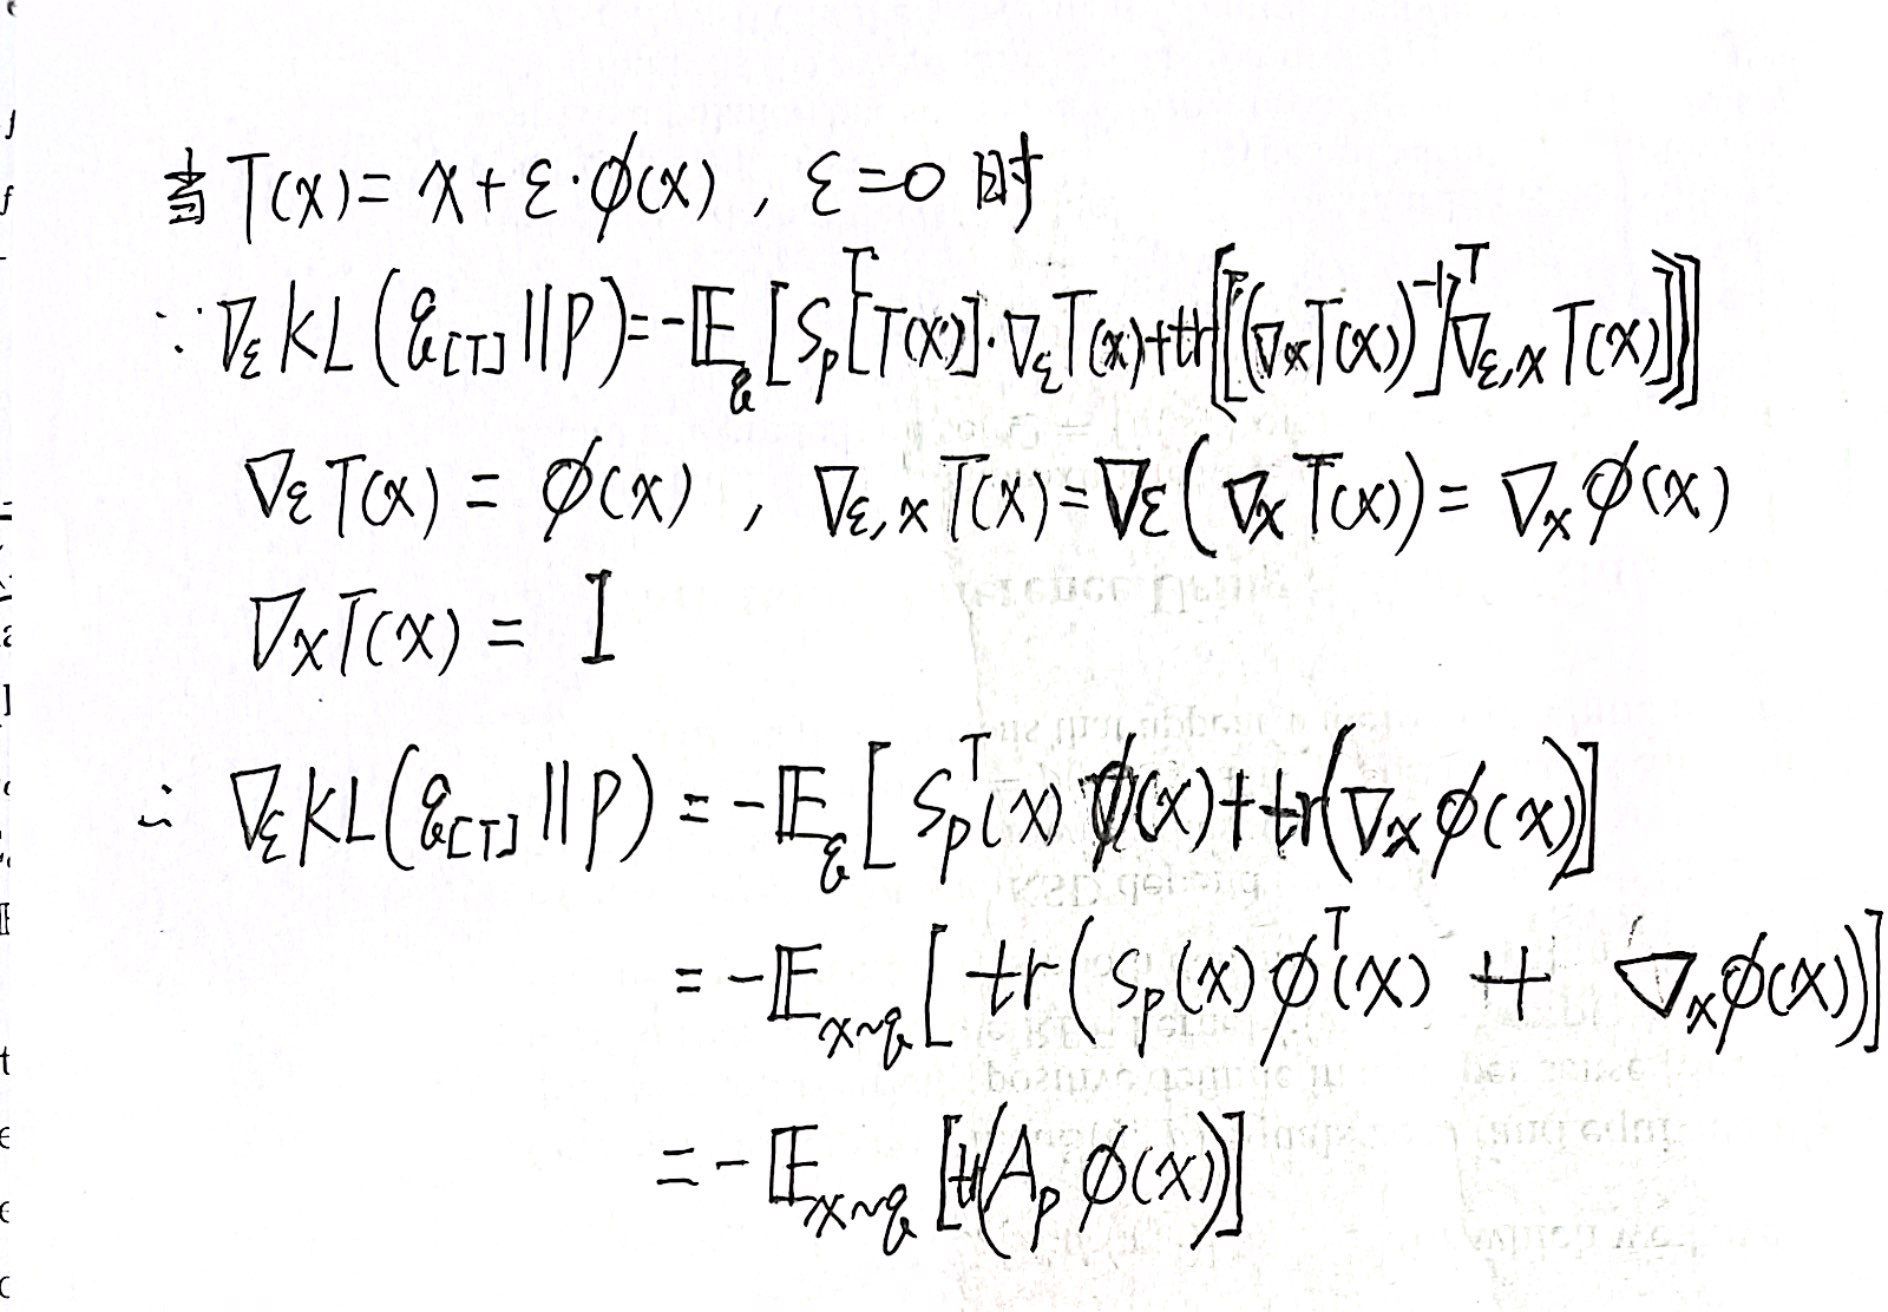 当 T(x) = x + ε·φ(x) , ε=0 时
∵ ∇_ε KL(q_[T] || p) = -𝔼_q [S_p^T[T(x)]·∇_ε T(x) + tr[[(∇_x T(x))^{-1}]^T ∇_{ε,x} T(x)]]
∇_ε T(x) = φ(x) , ∇_{ε,x} T(x) = ∇_ε(∇_x T(x)) = ∇_x φ(x)
∇_x T(x) = I
∴ ∇_ε KL(q_[T] || p) = -𝔼_q [S_p^T(x) φ(x) + tr(∇_x φ(x))]
= -𝔼_{x~q} [tr(S_p(x) φ^T(x) + ∇_x φ(x))]
= -𝔼_{x~q} [tr(A_p φ(x))]